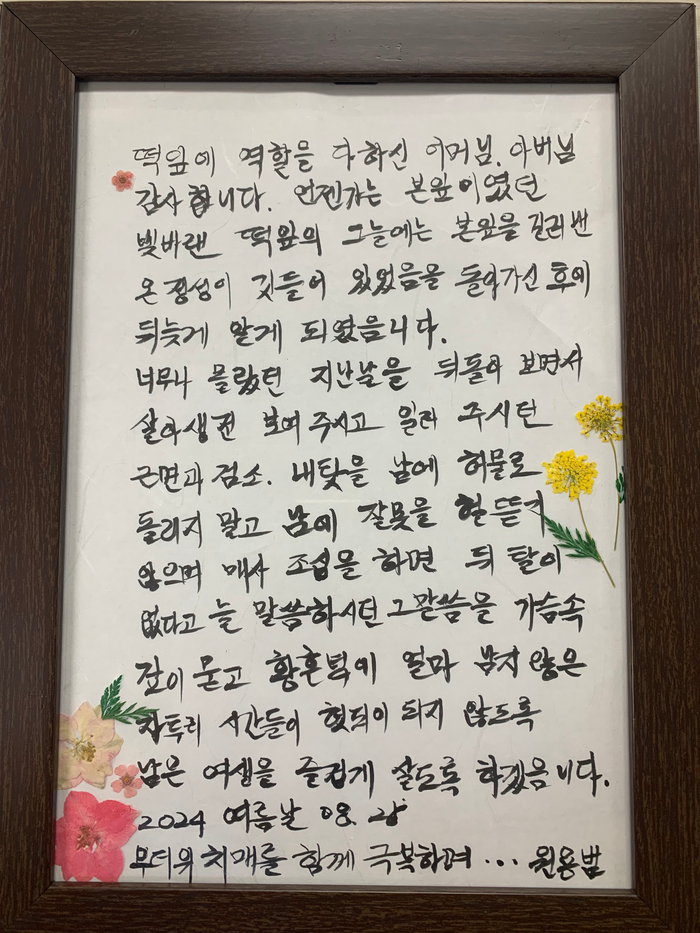 떡잎에 역할을 다하신 어머님. 아버님
감사 합니다. 언젠가는 본잎이였던
빛바랜 떡잎의 그늘에는 본잎을 길러 낸
온 정성이 깃들어 있었음을 돌아가신 후에
뒤늦게 알게 되였음니다.
너무나 몰랐던 지난날을 뒤돌아 보면서
살아생전 보여 주시고 일러 주시던
근면과 검소. 내탓을 남에 허물로
돌리지 말고 남에 잘못을 헐뜯지
않으며 매사 조심을 하면 뒤 탈이
없다고 늘 말씀하시던 그말씀을 가슴속
깊이 묻고 황혼턱에 얼마 남지 않은
자투리 시간들이 헛되이 되지 않도록
남은 여생을 즐겁게 살도록 하겠음니다.
2024 여름날 08. 25
무더위 치매를 함께 극복하며 ··· 원용범